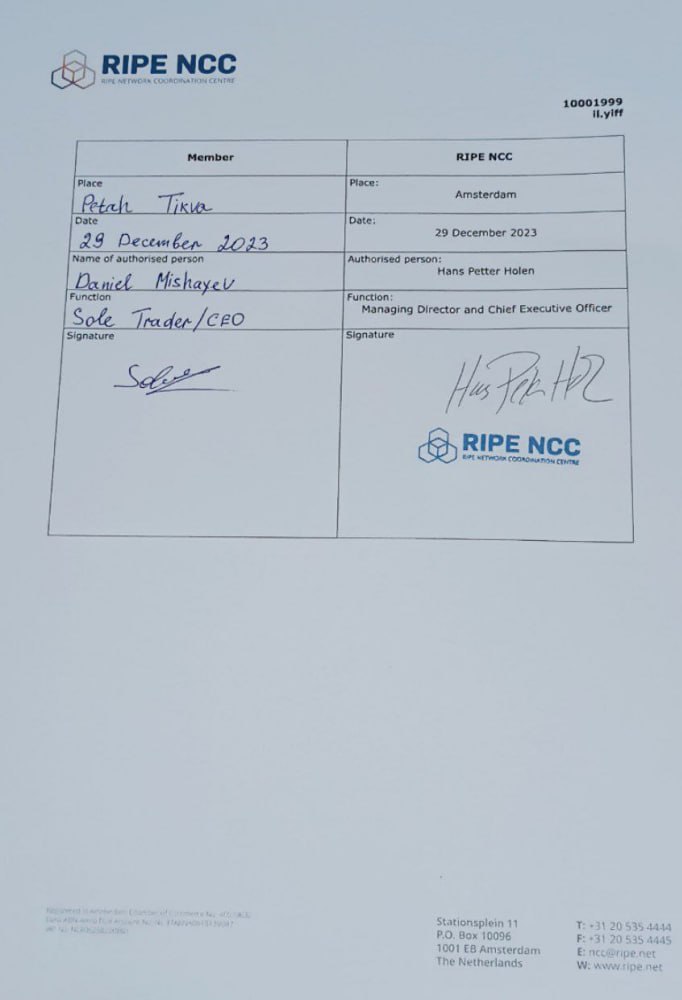 RIPE NCC
RIPE NETWORK COORDINATION CENTRE
10001999
il.yiff
Member
RIPE NCC
Place
Petah Tikva
Place:
Amsterdam
Date
29 December 2023
Date:
29 December 2023
Name of authorised person
Daniel Mishayev
Authorised person:
Hans Petter Holen
Function
Sole Trader/CEO
Function:
Managing Director and Chief Executive Officer
Signature
Signature
RIPE NCC
RIPE NETWORK COORDINATION CENTRE
Registered in Amsterdam Chamber of Commerce No.
Stationsplein 11
P.O. Box 10096
1001 EB Amsterdam
The Netherlands
T: +31 20 535 4444
F: +31 20 535 4445
E: ncc@ripe.net
W: www.ripe.net